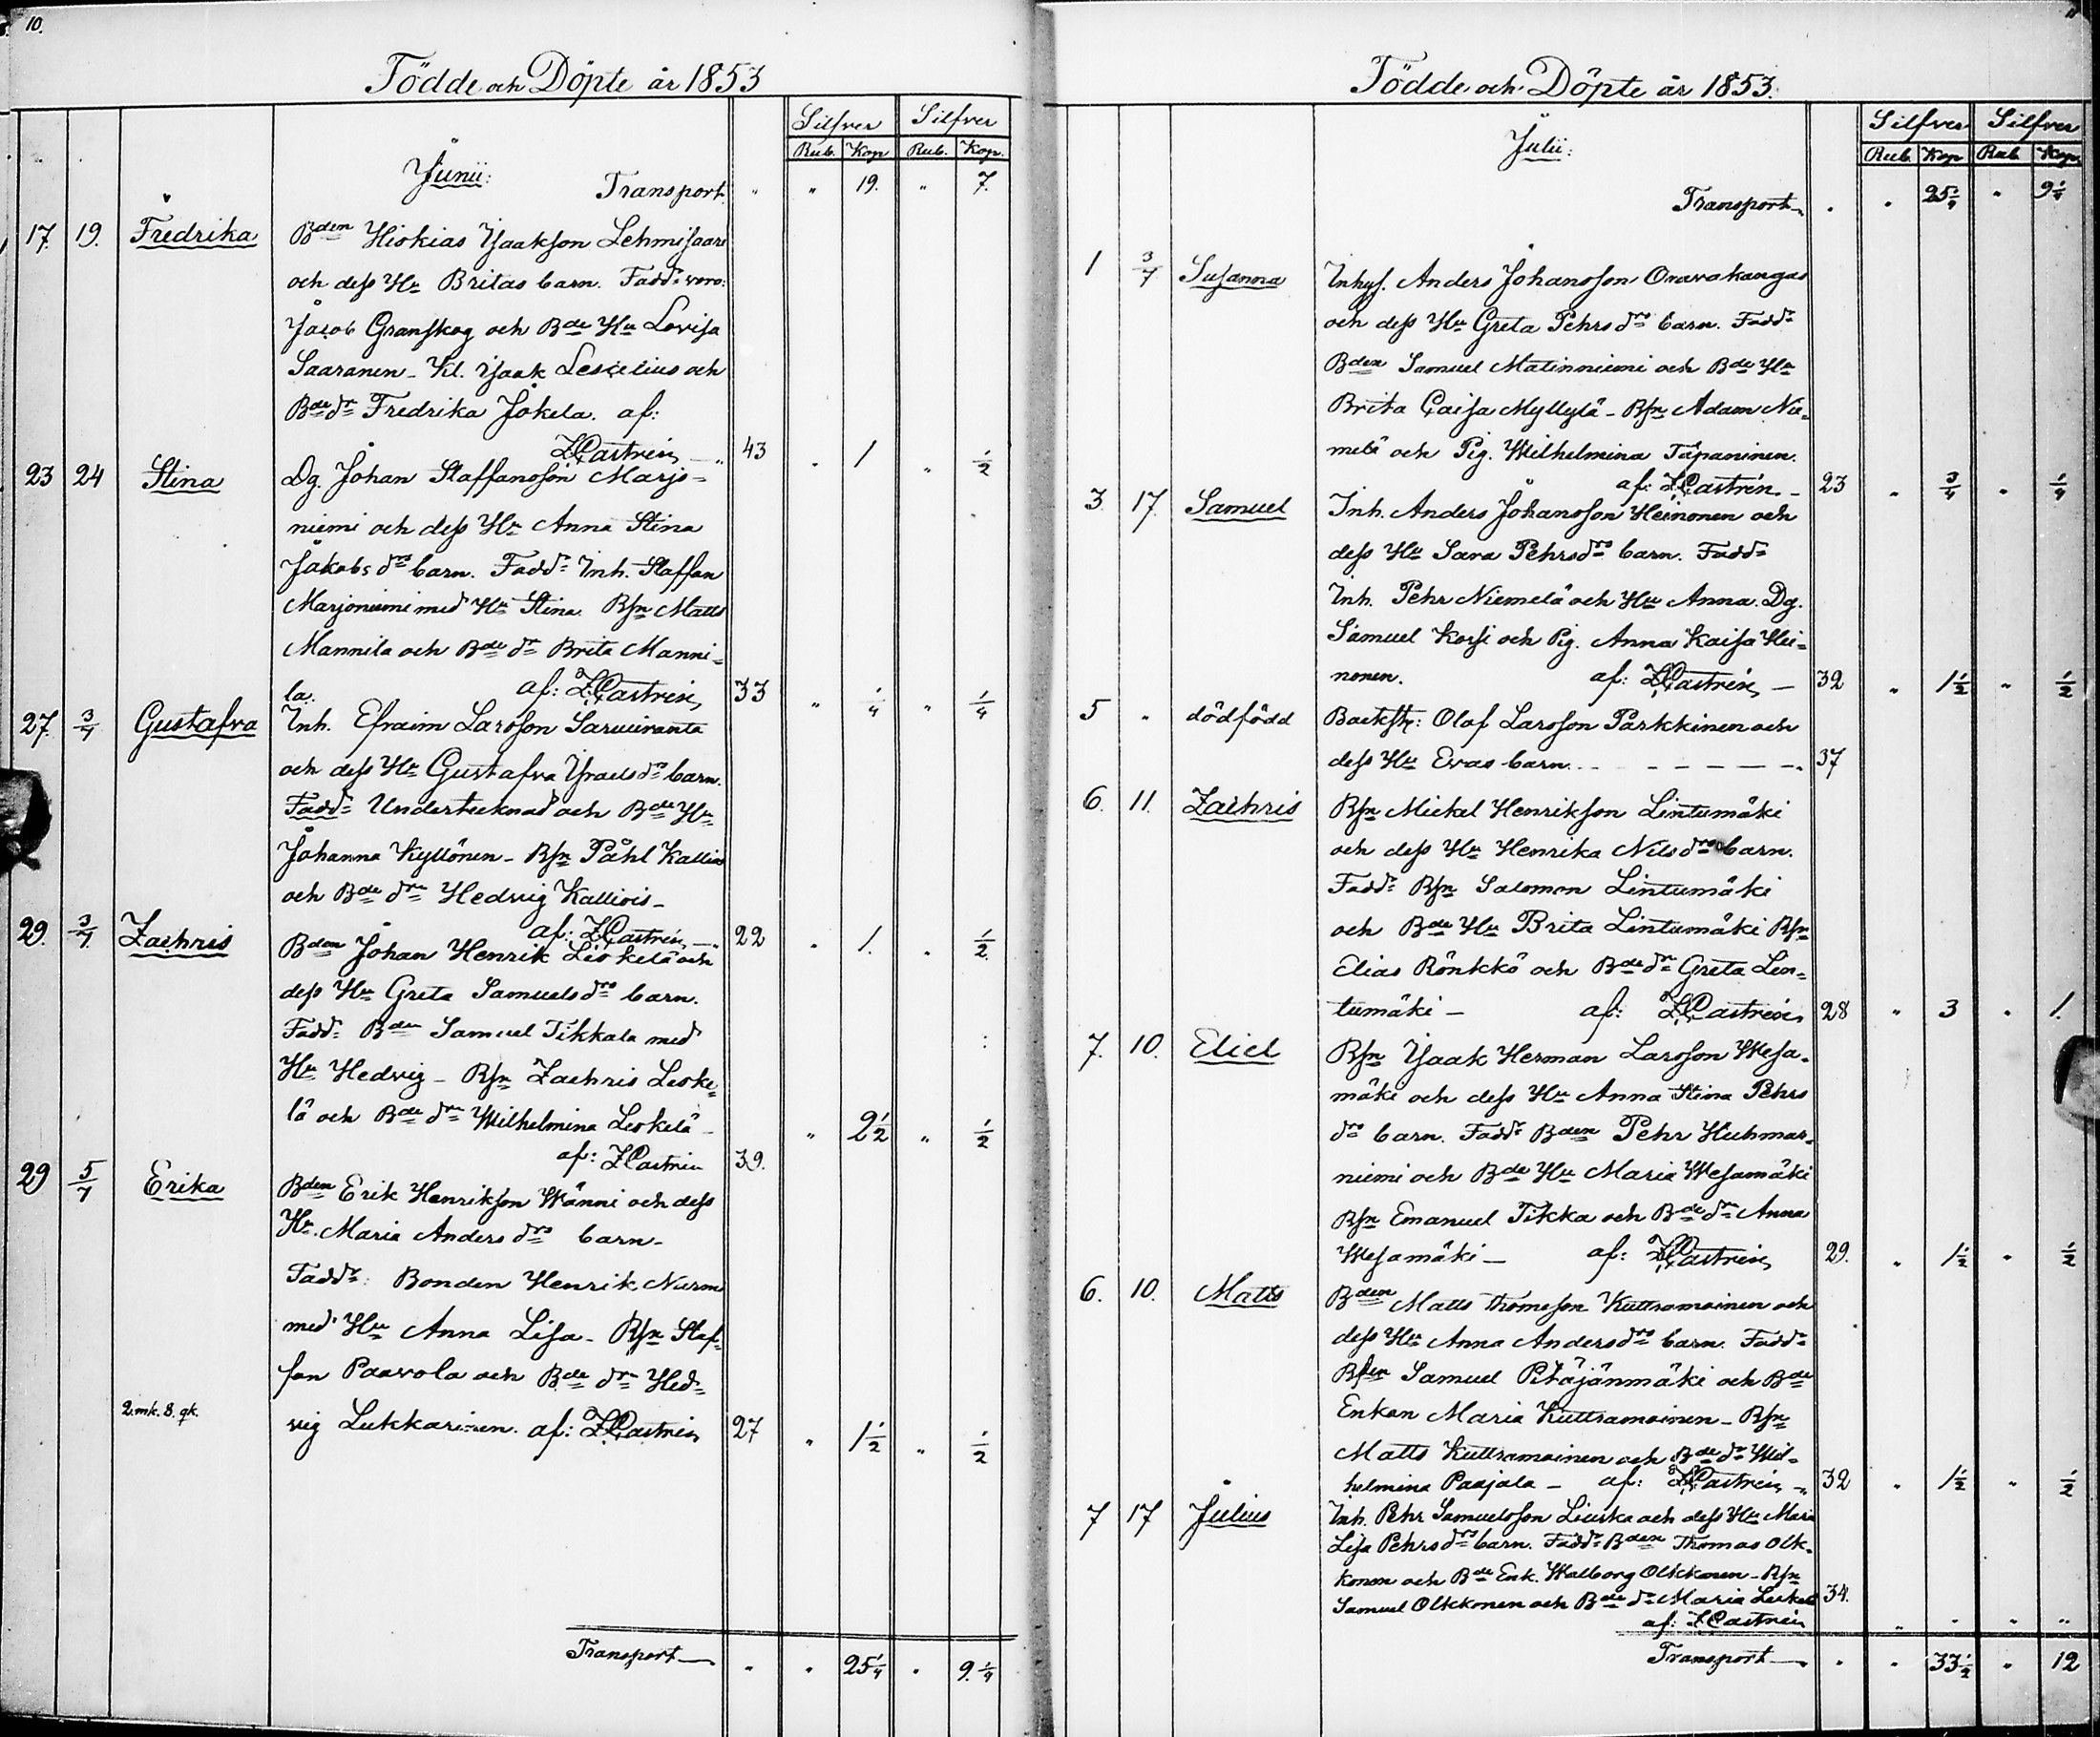 10.
Födde och Döpte år 1853
Silfver Silfver
Rub. Kop Rub. Kop.
Junii:
Transport. " " 19. " 7.
17. 19. Fredrika Bden Hiskias Isaksson Lehmisaari
och dess Hu Britas barn. Fadd. voro:
Jacob Granskog och Bde Hu Lovisa
Saaranen - Kl. Isaak Leskelius och
Bde dr Fredrika Jokela. af:
ZCastrén 43 " 1 " 1/2
23 24 Stina Dg. Johan Staffansson Marjo=
niemi och dess Hu Anna Stina
Jakobs drs barn. Faddr Inh. Staffan
Marjoniemi med Hu Stina. Bsn Matts
Mannila och Bde dr Brita Manni=
la. af: ZCastrén 33 " 1/4 " 1/4
27. 3/7 Gustafva Inh. Efraim Larsson Sarwiranta
och dess Hu Gustafva Israelsdrs barn.
Faddr Undertecknad och Bde Hu
Johanna Kyllönen - Bsn Påhl Kallio
och Bde dr Hedvig Kallio
af: ZCastrén 22 " 1. " 1/2
29. 3/7 Zachris Bden Johan Henrik Leskelä och
dess Hu Greta Samuelsdrs barn.
Faddr Bden Samuel Tikkala med
Hu Hedvig - Bsn Zachris Leske
lä och Bde dr Wilhelmina Leskelä - " 2 1/2 " 1/2
af: ZCastrén 39.
29 5/7 Erika Bden Erik Henriksson Wänni och dess
Hu Maria Anders drs barn -
Faddr: Bonden Henrik Nurmi
med Hu Anna Lisa - Bsn Staf=
fan Paavola och Bde dr Hed=
2.mk. 8. qk. vig Lukkarinen. af: ZCastrén 27 " 1 1/2 " 1/2
Transport " " 25 1/4 " 9. 1/4
11
Födde och Döpte år 1853.
Silfver Silfver
Rub. Kop Rub Kop.
Julii:
Transport " " 25 1/4 " 9 1/4
1 3/7 Susanna Inhys. Anders Johansson Oravakangas
och dess Hu Greta Pehrs drs barn. Faddr
Bden Samuel Matinniemi och Bde Hu
Brita Caisa Myllylä - Bsn Adam Nie=
melä och Pig. Wilhelmina Tapaninen.
af: ZCastrén - 23 " 3/4 " 1/4
3. 17. Samuel Inh. Anders Johansson Heinonen och
dess Hu Sara Pehrsdrs barn. Faddr
Inh. Pehr Niemelä och Hu Anna. Dg.
Samuel Korsi och Pig. Anna Kaisa Hei=
nonen. af: ZCastrén - 32 " 1 1/2 " 1/2
5 " dödfödd Backst: Olof Larsson Parkkinen och
dess Hu Evas barn. - - - - - - 37
6. 11. Zachris Bsn Mickel Henriksson Lintumäki
och dess Hu Henrika Nilsdrs barn.
Faddr Bsn Salomon Lintumäki
och Bde Hu Brita Lintumäki Bsn
Elias Rönkkö och Bde dr Greta Lin=
tumäki - af: ZCastrén 28 " 3 " 1.
7. 10. Eliel Bsn Isaak Herman Larsson Wesa=
mäki och dess Hu Anna Stina Pehrs
drs barn. Faddr Bden Pehr Huhmar=
niemi och Bde Hu Maria Wesamäki
Bsn Emanuel Tikka och Bde dr Anna
Wesamäki - af: ZCastrén 29. " 1 1/2 " 1/2
6. 10. Matts Bden Matts Thomasson Kuttramainen och
dess Hu Anna Andersdrs barn. Faddr
Bden Samuel Pitäjänmäki och Bde
Enkan Maria Kuttramainen - Bsn
Matts Kuttramainen och Bde dr Wil=
helmina Paajala - af: ZCastrén 32 " 1 1/2 " 1/2
7 17 Julius Inh. Pehr Samuelsson Liuska och dess Hu Maria
Lisa Pehrsdrs barn. Faddr Bden Thomas Olk=
konen och Bde Enk. Walborg Olkkonen - Bsn
Samuel Olkkonen och Bde dr Maria 34.
af: ZCastrén " " " "
Transport " " 33 1/2 " 12